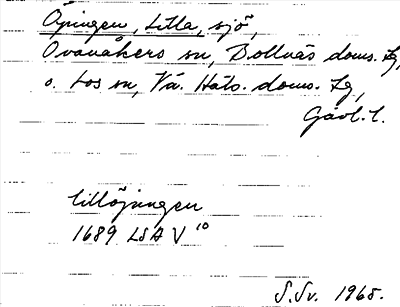 Öjingen, Lilla, sjö,
Ovanåkers sn, Bollnäs doms. Lg,
o. Los sn, Vä. Häls. doms. Lg,
Gävl. l.
lillöjungen
1689 LSA V 10
S.Sv. 1965.